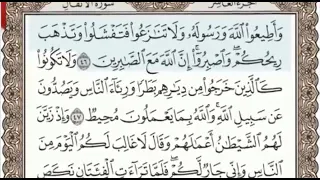 سورة الأنفال
الجزء العاشر
وَأَطِيعُوا۟ ٱللَّهَ وَرَسُولَهُۥ وَلَا تَنَٰزَعُوا۟ فَتَفْشَلُوا۟ وَتَذْهَبَ
رِيحُكُمْ ۖ وَٱصْبِرُوٓا۟ ۚ إِنَّ ٱللَّهَ مَعَ ٱلصَّٰبِرِينَ ٤٦ وَلَا تَكُونُوا۟
كَٱلَّذِينَ خَرَجُوا۟ مِن دِيَٰرِهِم بَطَرًا وَرِئَآءَ ٱلنَّاسِ وَيَصُدُّونَ
عَن سَبِيلِ ٱللَّهِ ۚ وَٱللَّهُ بِمَا يَعْمَلُونَ مُحِيطٌ ٤٧ وَإِذْ زَيَّنَ
لَهُمُ ٱلشَّيْطَٰنُ أَعْمَٰلَهُمْ وَقَالَ لَا غَالِبَ لَكُمُ ٱلْيَوْمَ مِنَ
ٱلنَّاسِ وَإِنِّى جَارٌ لَّكُمْ ۖ فَلَمَّا تَرَآءَتِ ٱلْفِئَتَانِ نَكَصَ